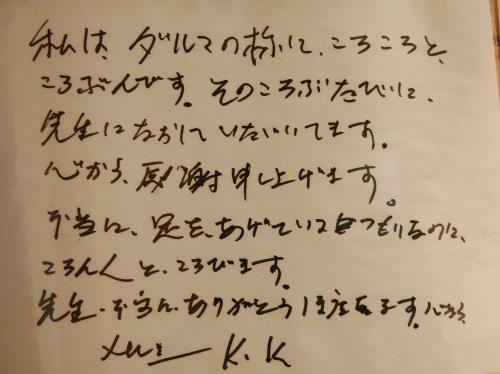 私は、ダルマの様に、ころころと、
ころぶんです。そのころぶたびに、
先生になおしていただいてます。
心から、感謝申し上げます。
本当に、足を、あげているつもりなのに、
ころんと、ころびます。
先生、本当に、ありがとうございます。心から
K.K